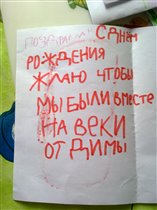 ПОЗДРАВЛЯЮ С ДНЁМ
РОЖДЕНИЯ
ЖЛАЮ ЧТОБЫ
МЫ БЫЛИ ВМЕСТЕ
НА ВЕКИ
ОТ ДИМЫ